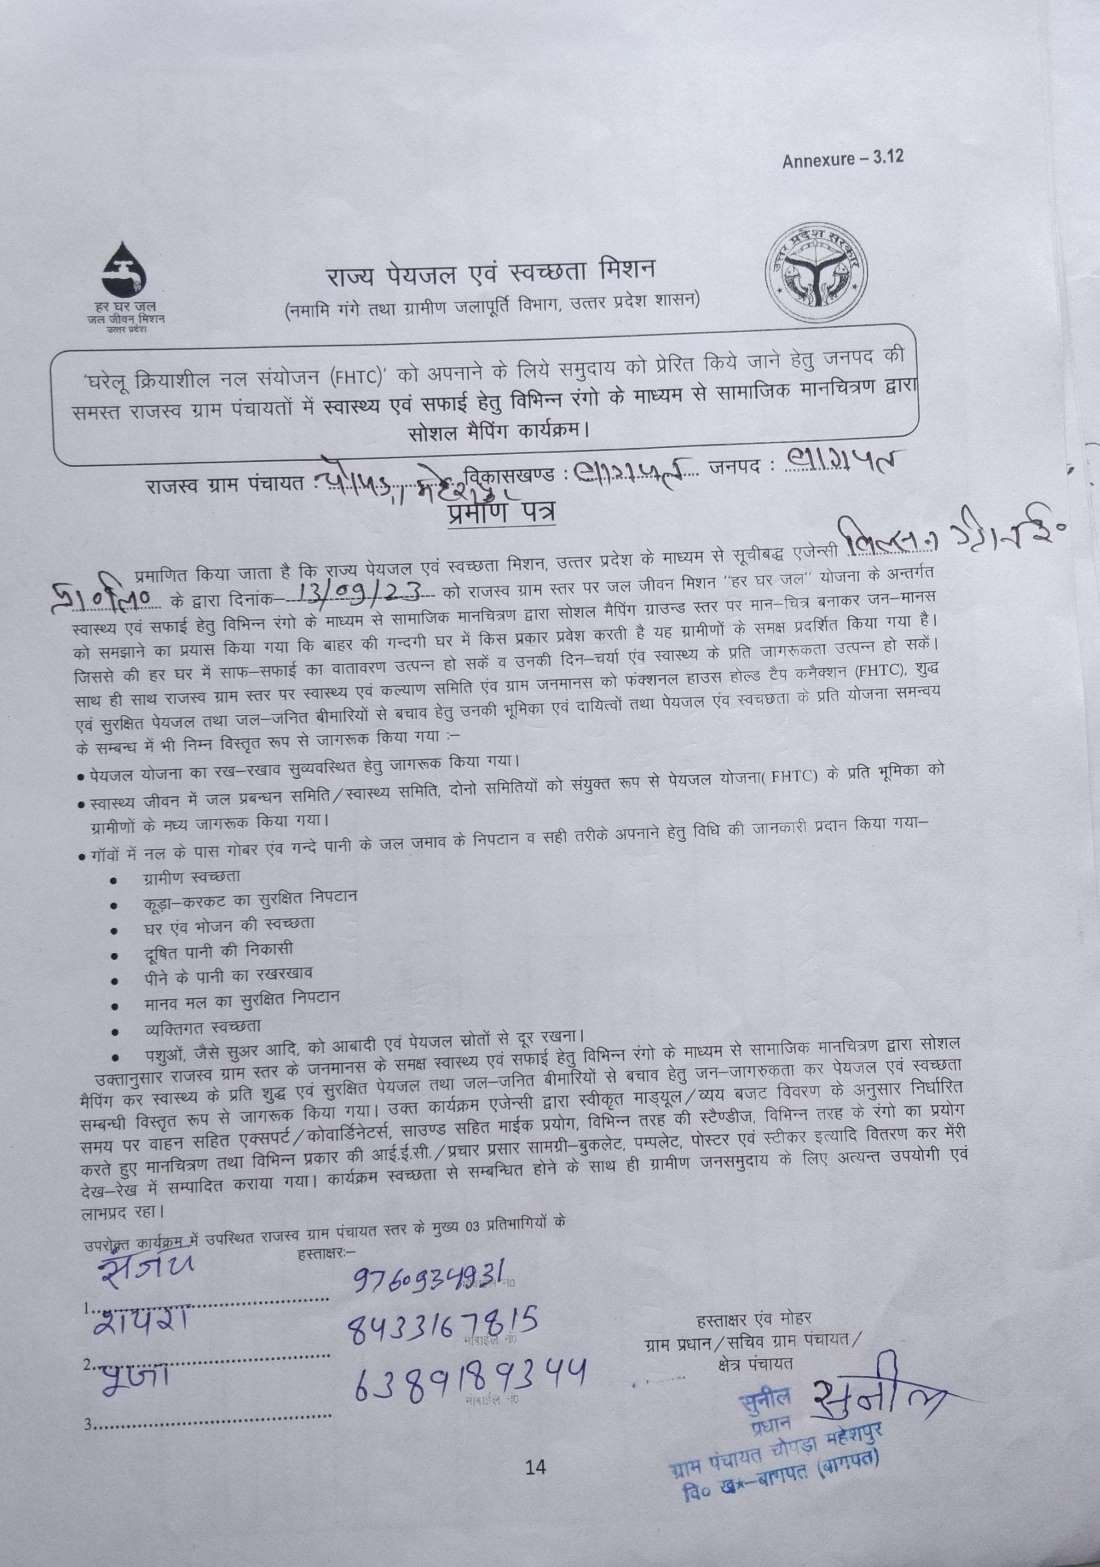 Annexure – 3.12
हर घर जल
जल जीवन मिशन
उत्तर प्रदेश
उत्तर प्रदेश सरकार
राज्य पेयजल एवं स्वच्छता मिशन
(नमामि गंगे तथा ग्रामीण जलापूर्ति विभाग, उत्तर प्रदेश शासन)
'घरेलू क्रियाशील नल संयोजन (FHTC)' को अपनाने के लिये समुदाय को प्रेरित किये जाने हेतु जनपद की
समस्त राजस्व ग्राम पंचायतों में स्वास्थ्य एवं सफाई हेतु विभिन्न रंगो के माध्यम से सामाजिक मानचित्रण द्वारा
सोशल मैपिंग कार्यक्रम।
राजस्व ग्राम पंचायत : चोपडा महेशपुर विकासखण्ड : बागपत जनपद : बागपत
प्रमाण पत्र
प्रमाणित किया जाता है कि राज्य पेयजल एवं स्वच्छता मिशन, उत्तर प्रदेश के माध्यम से सूचीबद्ध एजेन्सी विल्सन
प्रा० लि० के द्वारा दिनांक–13/09/23 को राजस्व ग्राम स्तर पर जल जीवन मिशन "हर घर जल" योजना के अन्तर्गत
स्वास्थ्य एवं सफाई हेतु विभिन्न रंगो के माध्यम से सामाजिक मानचित्रण द्वारा सोशल मैपिंग ग्राउन्ड स्तर पर मान–चित्र बनाकर जन–मानस
को समझाने का प्रयास किया गया कि बाहर की गन्दगी घर में किस प्रकार प्रवेश करती है यह ग्रामीणों के समक्ष प्रदर्शित किया गया है।
जिससे की हर घर में साफ–सफाई का वातावरण उत्पन्न हो सकें व उनकी दिन–चर्या एंव स्वास्थ्य के प्रति जागरूकता उत्पन्न हो सकें।
साथ ही साथ राजस्व ग्राम स्तर पर स्वास्थ्य एवं कल्याण समिति एंव ग्राम जनमानस को फंक्शनल हाउस होल्ड टैप कनैक्शन (FHTC), शुद्ध
एवं सुरक्षित पेयजल तथा जल–जनित बीमारियों से बचाव हेतु उनकी भूमिका एवं दायित्वों तथा पेयजल एंव स्वचछता के प्रति योजना समन्वय
के सम्बन्ध में भी निम्न विस्तृत रूप से जागरूक किया गया :–
• पेयजल योजना का रख–रखाव सुव्यवस्थित हेतु जागरूक किया गया।
• स्वास्थ्य जीवन में जल प्रबन्धन समिति/स्वास्थ्य समिति, दोनो समितियों को संयुक्त रूप से पेयजल योजना( FHTC) के प्रति भूमिका को
ग्रामीणों के मध्य जागरूक किया गया।
• गॉवों में नल के पास गोबर एंव गन्दे पानी के जल जमाव के निपटान व सही तरीके अपनाने हेतु विधि की जानकारी प्रदान किया गया–
• ग्रामीण स्वच्छता
• कूड़ा–करकट का सुरक्षित निपटान
• घर एंव भोजन की स्वच्छता
• दूषित पानी की निकासी
• पीने के पानी का रखरखाव
• मानव मल का सुरक्षित निपटान
• व्यक्तिगत स्वच्छता
• पशुओं, जैसे सुअर आदि, को आबादी एवं पेयजल स्रोतों से दूर रखना।
उक्तानुसार राजस्व ग्राम स्तर के जनमानस के समक्ष स्वास्थ्य एवं सफाई हेतु विभिन्न रंगो के माध्यम से सामाजिक मानचित्रण द्वारा सोशल
मैपिंग कर स्वास्थ्य के प्रति शुद्ध एवं सुरक्षित पेयजल तथा जल–जनित बीमारियों से बचाव हेतु जन–जागरुकता कर पेयजल एवं स्वच्छता
सम्बन्धी विस्तृत रूप से जागरूक किया गया। उक्त कार्यक्रम एजेन्सी द्वारा स्वीकृत माड्यूल/व्यय बजट विवरण के अनुसार निर्धारित
समय पर वाहन सहित एक्सपर्ट/कोवार्डिनेटर्स, साउण्ड सहित माईक प्रयोग, विभिन्न तरह की स्टैण्डीज, विभिन्न तरह के रंगो का प्रयोग
करते हुए मानचित्रण तथा विभिन्न प्रकार की आई.ई.सी./प्रचार प्रसार सामग्री–बुकलेट, पम्पलेट, पोस्टर एवं स्टीकर इत्यादि वितरण कर मेंरी
देख–रेख में सम्पादित कराया गया। कार्यक्रम स्वच्छता से सम्बन्धित होने के साथ ही ग्रामीण जनसमुदाय के लिए अत्यन्त उपयोगी एवं
लाभप्रद रहा।
उपरोक्त कार्यक्रम में उपस्थित राजस्व ग्राम पंचायत स्तर के मुख्य 03 प्रतिभागियों के
हस्ताक्षरः–
1. संजय 9760934931 मोबाईल नं0
2. शायरा 8433167815 मोबाईल नं0
3. पूजा 6389189344 मोबाईल नं0
हस्ताक्षर एंव मोहर
ग्राम प्रधान/सचिव ग्राम पंचायत/
क्षेत्र पंचायत
सुनील
सुनील
प्रधान
ग्राम पंचायत चोपड़ा महेशपुर
वि० ख०–बागपत (बागपत)
14